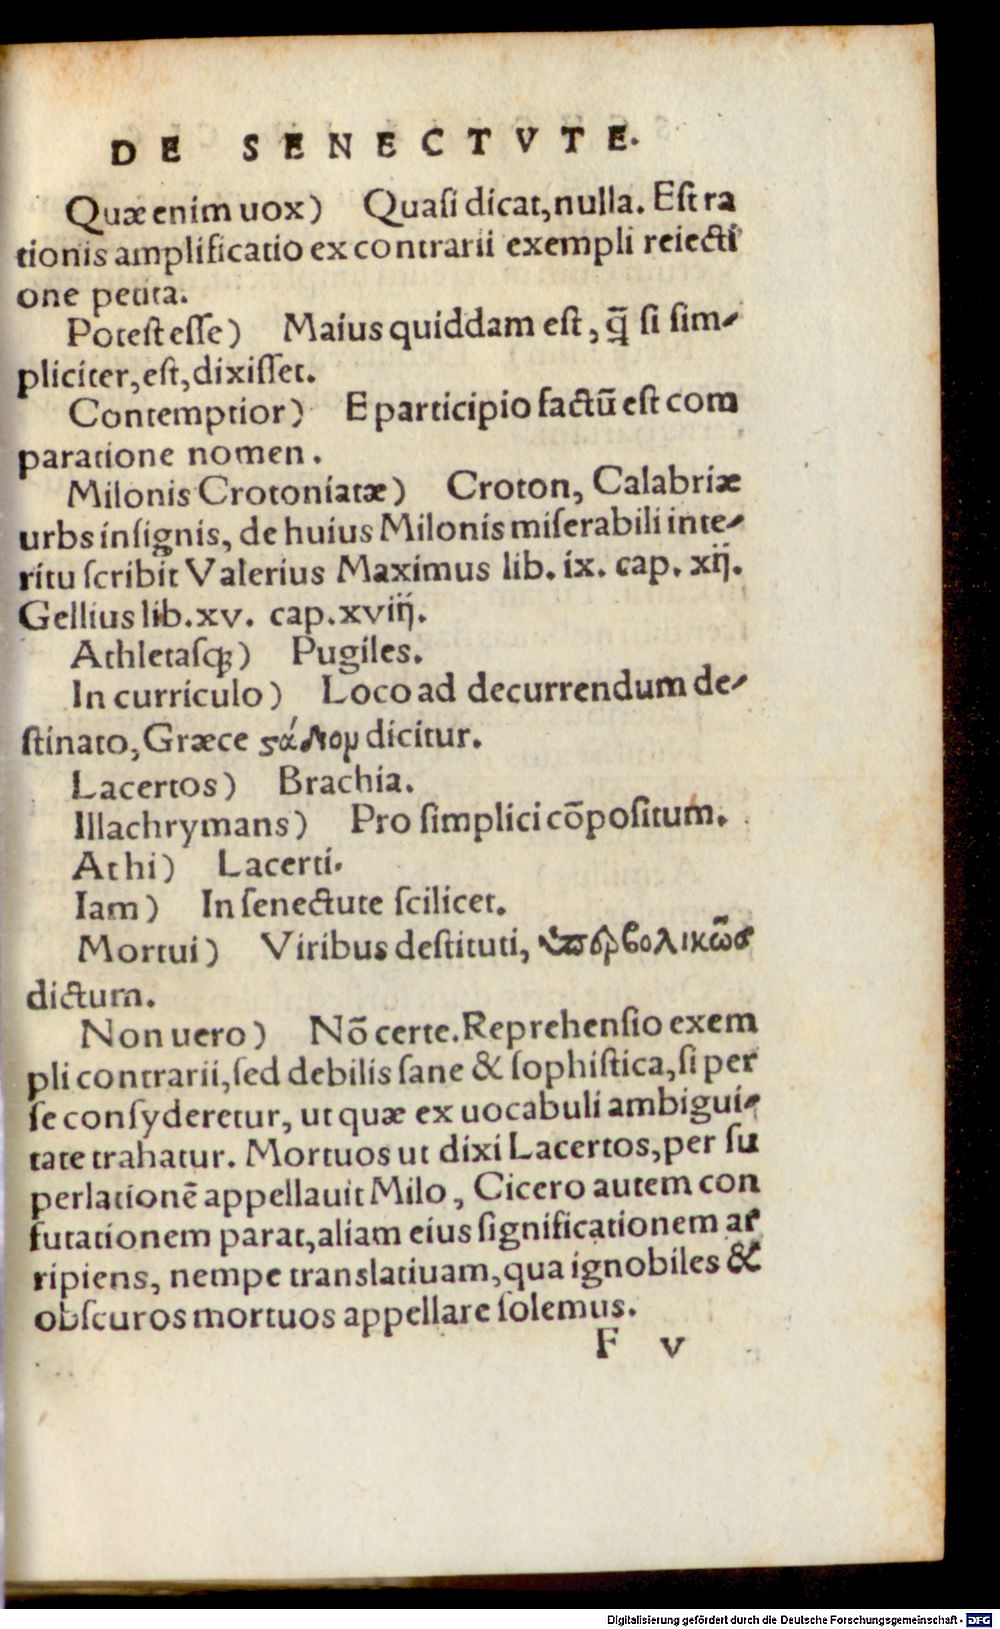 DE SENECTVTE.
Quæ enim uox) Quaſi dicat, nulla. Eſt ra
tionis amplificatio ex contrarii exempli reiecti
one petita.
Poteſt eſſe) Maius quiddam eſt, q̃ ſi ſim-
pliciter, eſt, dixiſſet.
Contemptior) E participio factũ eſt com
paratione nomen.
Milonis Crotoniatæ) Croton, Calabriæ
urbs inſignis, de huius Milonis miſerabili inte-
ritu ſcribit Valerius Maximus lib. ix. cap. xij.
Gellius lib. xv. cap. xviij.
Athletaſq;) Pugiles.
In curriculo) Loco ad decurrendum de-
ſtinato, Græce ϛάδιον dicitur.
Lacertos) Brachia.
Illachrymans) Pro ſimplici cõpoſitum.
At hi) Lacerti.
Iam) In ſenectute ſcilicet.
Mortui) Viribus deſtituti, ὑπερβολικῶς
dictum.
Non uero) Nõ certe. Reprehenſio exem
pli contrarii, ſed debilis ſane & ſophiſtica, ſi per
ſe conſyderetur, ut quæ ex uocabuli ambigui-
tate trahatur. Mortuos ut dixi Lacertos, per ſu
perlationẽ appellauit Milo, Cicero autem con
futationem parat, aliam eius ſignificationem ar
ripiens, nempe translatiuam, qua ignobiles &
obſcuros mortuos appellare ſolemus.
F v
Digitalisierung gefördert durch die Deutsche Forschungsgemeinschaft - DFG